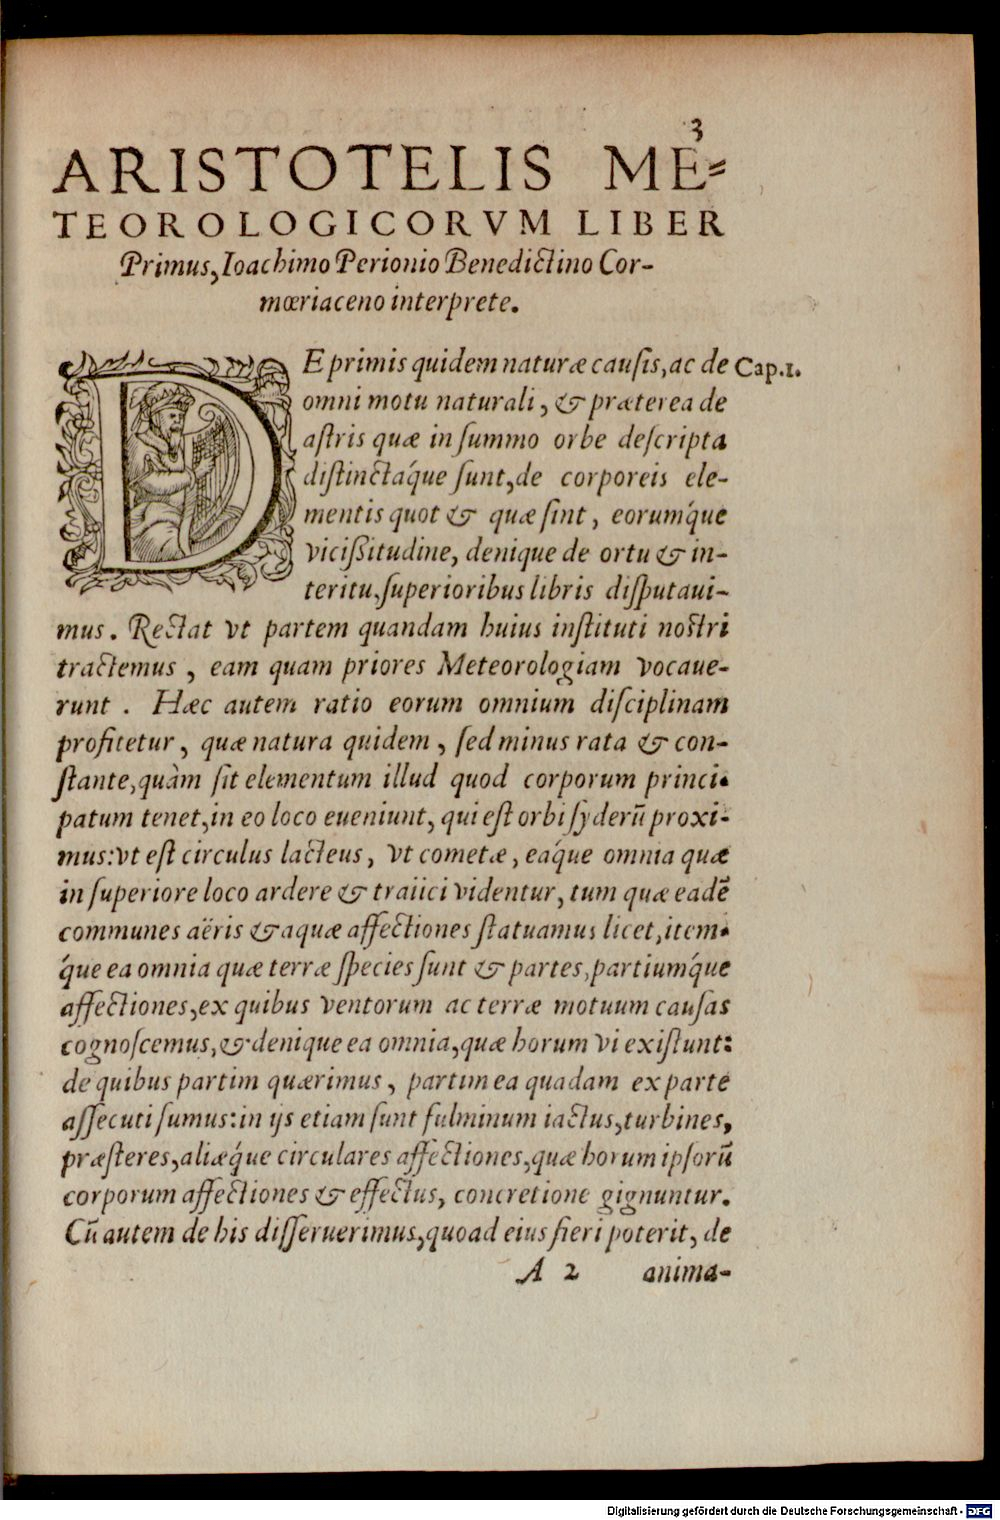 3
ARISTOTELIS ME=
TEOROLOGICORVM LIBER
Primus, Ioachimo Perionio Benedictino Cor-
mœriaceno interprete.
DE primis quidem naturæ causis, ac de Cap.1.
omni motu naturali, & præterea de
astris quæ in summo orbe descripta
distinctáque sunt, de corporeis ele-
mentis quot & quæ sint, eorumq́ue
vicißitudine, denique de ortu & in-
teritu, superioribus libris disputaui-
mus. Restat vt partem quandam huius instituti nostri
tractemus, eam quam priores Meteorologiam vocaue-
runt. Hæc autem ratio eorum omnium disciplinam
profitetur, quæ natura quidem, sed minus rata & con-
stante, quàm sit elementum illud quod corporum princi-
patum tenet, in eo loco eueniunt, qui est orbi syderũ proxi-
mus: vt est circulus lacteus, vt cometæ, eáque omnia quæ
in superiore loco ardere & traiici videntur, tum quæ eadẽ
communes aëris & aquæ affectiones statuamus licet, item-
q́ue ea omnia quæ terræ species sunt & partes, partiumq́ue
affectiones, ex quibus ventorum ac terræ motuum causas
cognoscemus, & denique ea omnia, quæ horum vi existunt:
de quibus partim quærimus, partim ea quadam ex parte
assecuti sumus: in ijs etiam sunt fulminum iactus, turbines,
præsteres, aliæq́ue circulares affectiones, quæ horum ipsorũ
corporum affectiones & effectus, concretione gignuntur.
Cũ autem de his disseruerimus, quoad eius fieri poterit, de
A 2 anima-
Digitalisierung gefördert durch die Deutsche Forschungsgemeinschaft - DFG